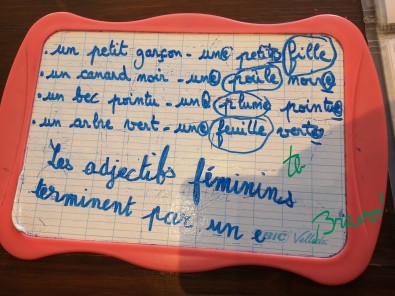 . un petit garçon - une petite fille
. un canard noir - une poule noire
. un bec pointu - une plume pointue
. un arbre vert - une feuille verte
tb
Les adjectifs féminins
terminent par un e
Bravo!
BIC Velleda